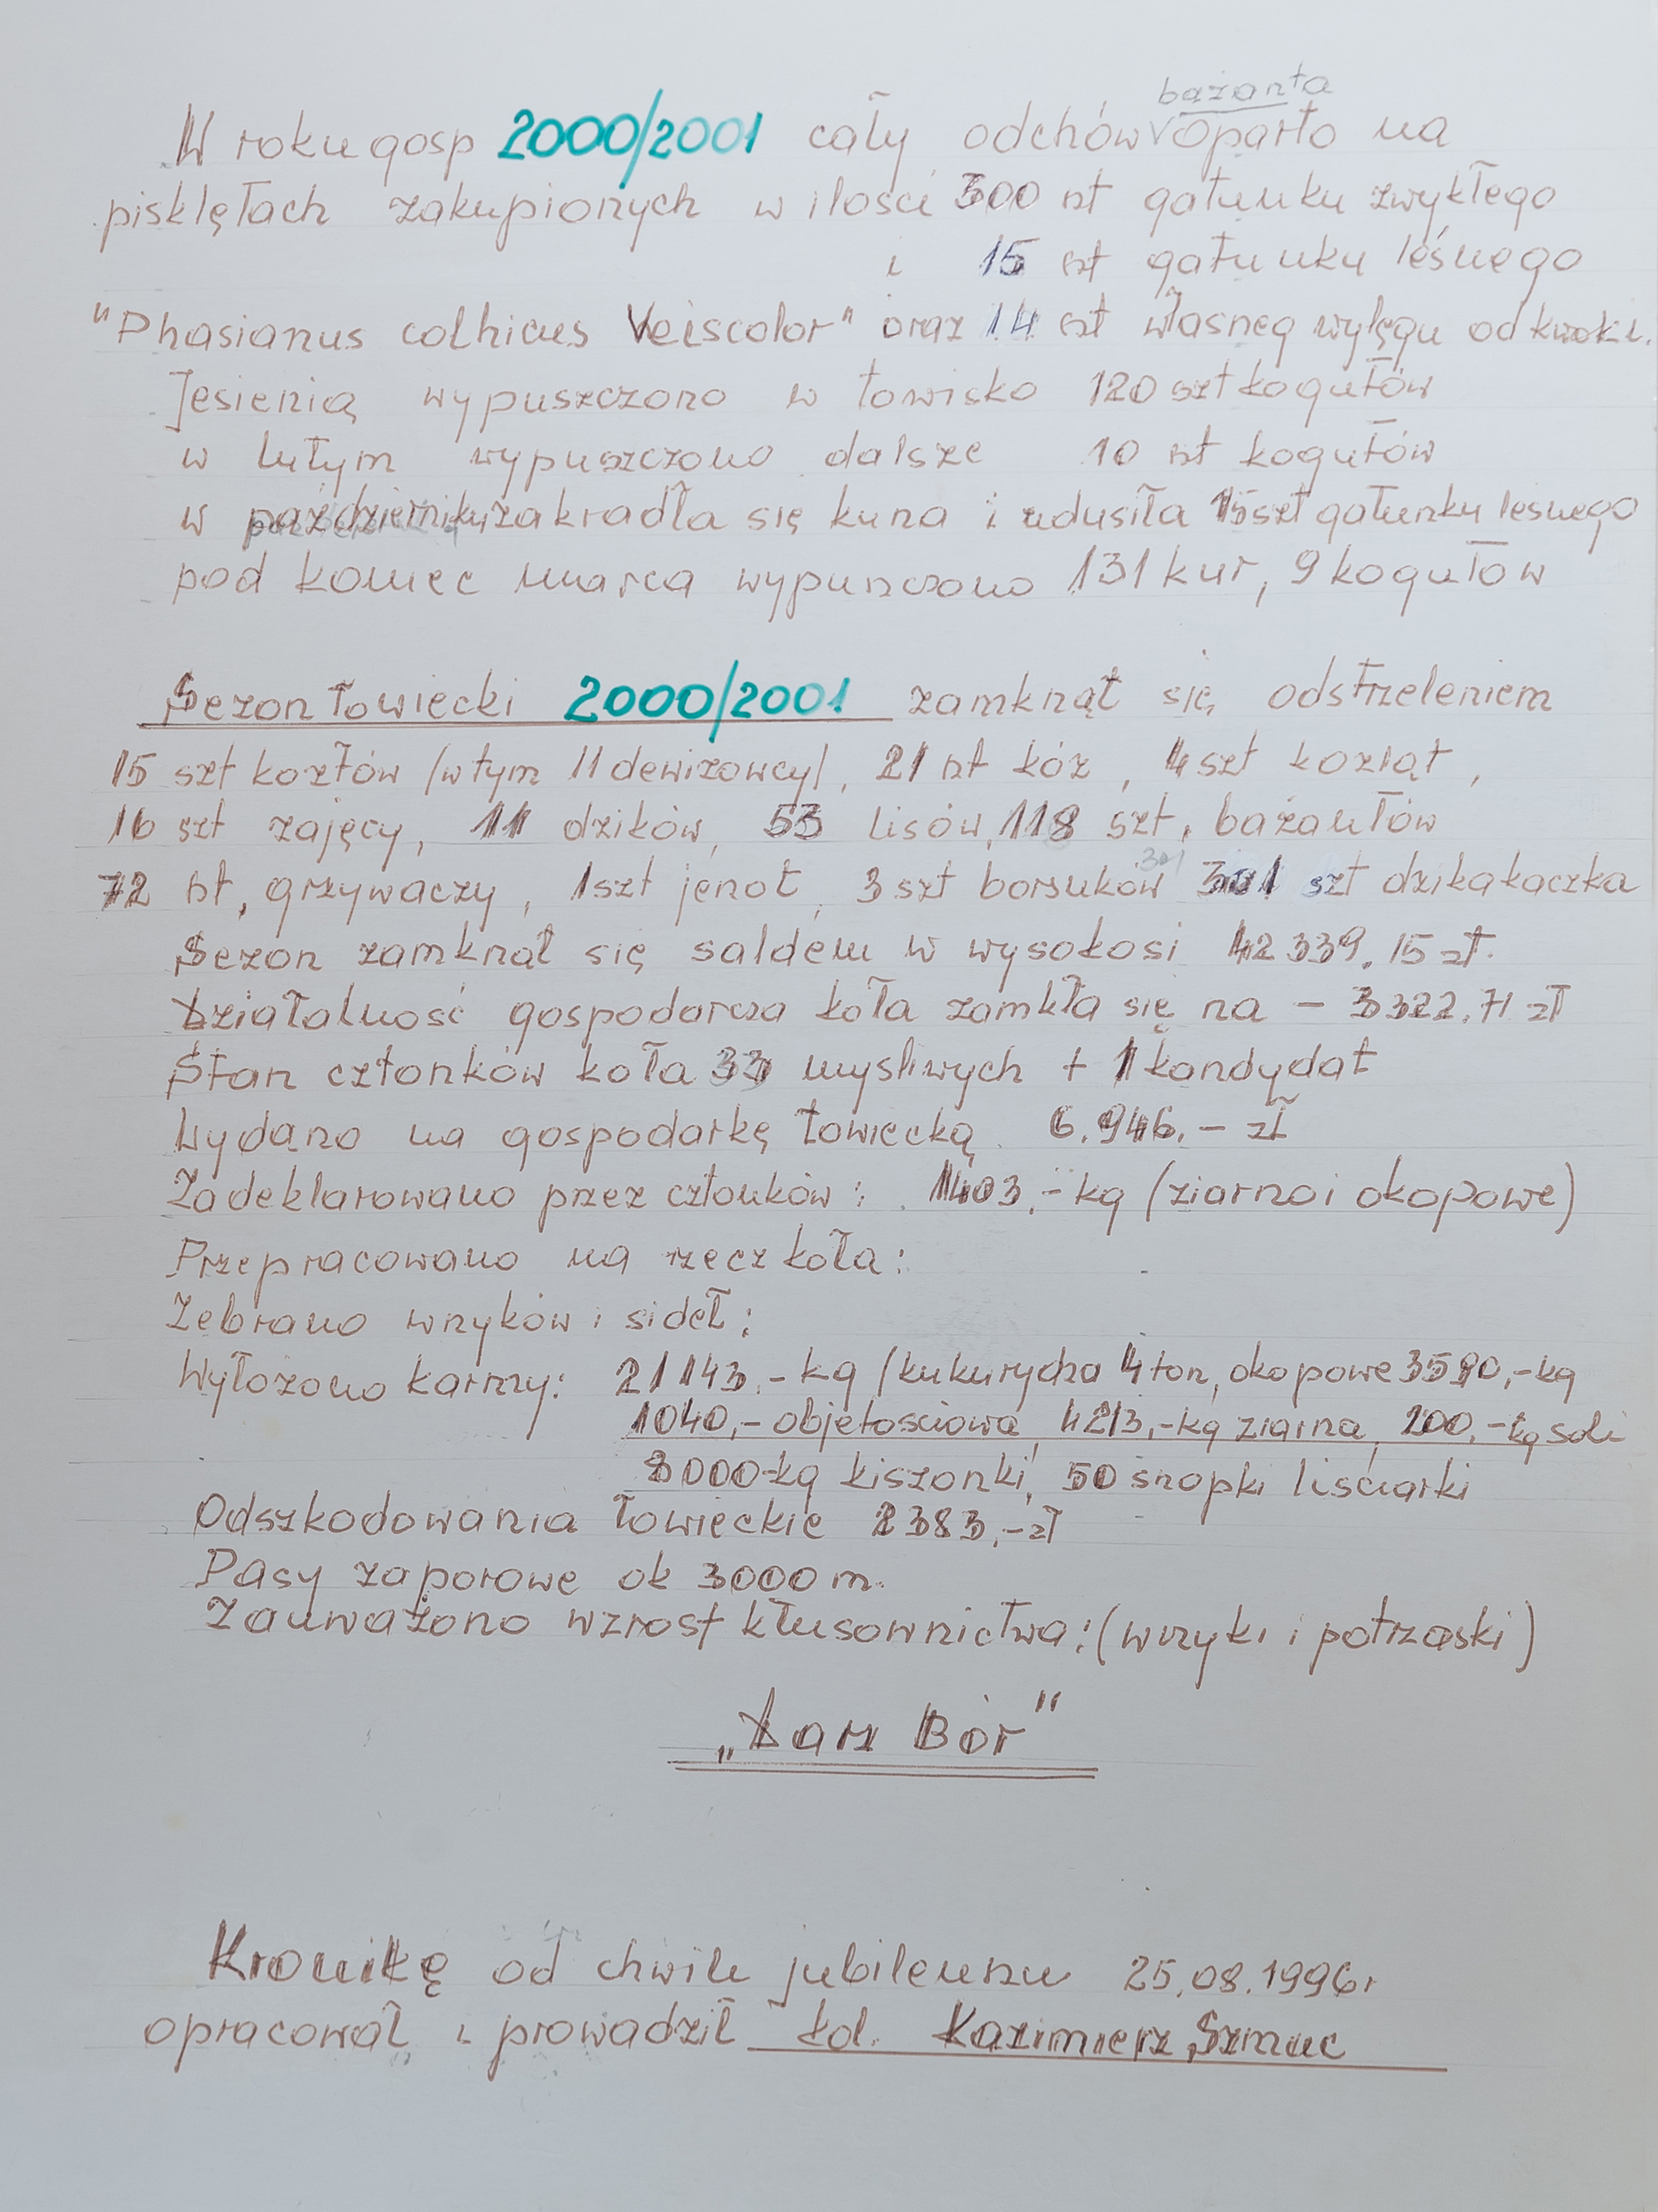 bażanta
W roku gosp 2000/2001 cały odchów oparto na
pisklętach zakupionych w ilości 300 szt gatunku zwykłego
i 15 szt gatunku leśnego
"Phasianus colhicus Veiscolor" oraz 14 szt własneg wylęgu od kwoki.
Jesienią wypuszczono w łowisko 120 szt kogutów
w lutym wypuszczono dalsze 10 szt kogutów
w październiku zakradła się kuna i udusiła 15 szt gatunku leśnego
pod koniec marca wypuszczono 131 kur, 9 kogutów
Sezon łowiecki 2000/2001 zamknął się odstrzeleniem
15 szt kozłów (w tym 11 dewizowcy), 21 szt kóz, 4 szt koźląt,
16 szt zajęcy, 11 dzików, 53 lisów, 118 szt. bażantów
72 szt, grzywaczy, 1 szt jenot, 3 szt borsuków 301 szt dzika kaczka
Sezon zamknął się saldem w wysokosi 42 339.15 zł.
Działalność gospodarcza koła zamkła się na - 3 322.71 zł
Stan członków koła 33 myśliwych + 1 kandydat
Wydano na gospodarkę łowiecką 6.946.- zł
Zadeklarowano przez członków: 1403.- kg (ziarno i okopowe)
Przepracowano na rzecz koła:
Zebrano wnyków i sideł:
Wyłożono karmy: 21143.- kg (kukurydza 4 ton, okopowe 3590,- kg
1040,- objętościowa, 4213,- kg ziarna, 200,- kg soli
8000 - kg kiszonki, 50 snopki liściarki
Odszkodowania łowieckie 2383,- zł
Pasy zaporowe ok 3000 m.
Zauważono wzrost kłusownictwa! (wnyki i potrzaski)
„Darz Bór"
Kronikę od chwili jubileuszu 25.08.1996r
opracował i prowadził kol. Kazimierz Szmuc